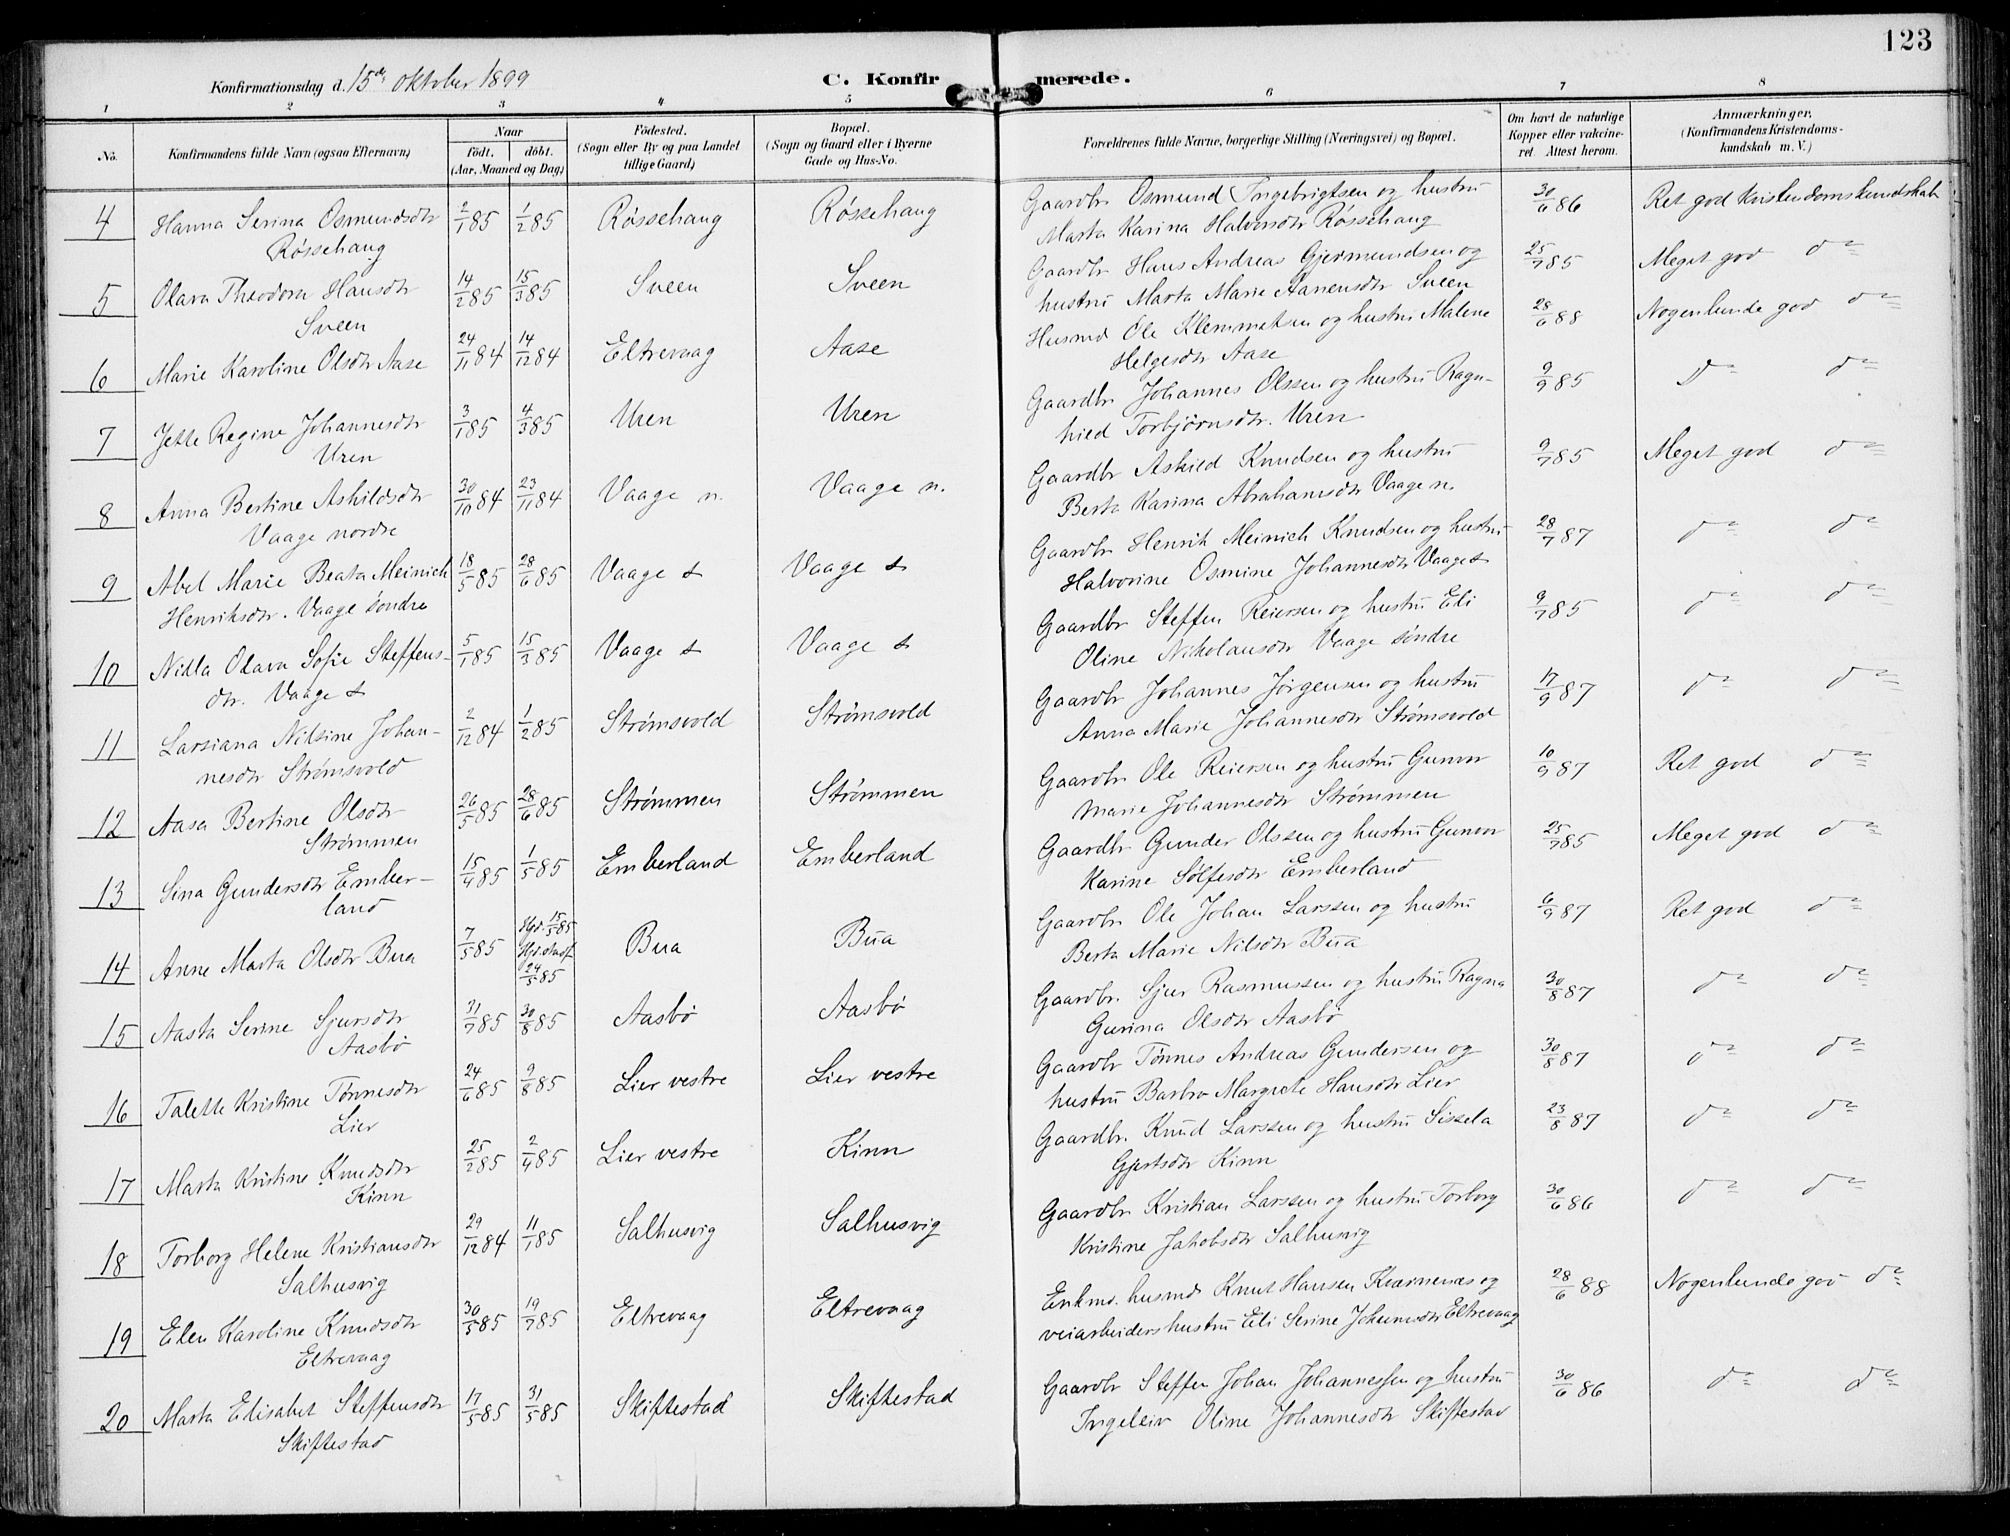 123
Konfirmationsdag d. 15de oktober 1899
C. Konfirmerede.
1 2 3 4 5 6 7 8
No.
Konfirmandens fulde Navn (ogsaa Efternavn)
Naar
Födt. döbt.
(Aar, Maaned og Dag)
Födested.
(Sogn eller By og paa Landet
tillige Gaard)
Bopæl.
(Sogn og Gaard eller i Byerne
Gade og Hus-No.
Forældrenes fulde Navne, borgerlige Stilling (Næringsvei) og Bopæl.
Om havt de naturlige
Kopper eller vakcine-
ret. Attest herom.
Anmærkninger.
(Konfirmandens Kristendoms-
kundskab m. V.)
4 Hanna Serina Osmundsdtr 2/1 85 1/2 85 Røssehaug Røssehaug Gaardbr Osmund Ingebrigtsen og hustru 30/6 86 Ret god kristendomskundskab
Røssehaug Marta Karina Halvorsdtr Røssehaug
5 Olava Theodora Hansdtr 14/2 85 15/3 85 Sveen Sveen Gaardbr Hans Andreas Gjermundsen og 25/7 85 Meget god do
Sveen hustru Marta Marie Aanensdtr Sveen
6 Marie Karoline Olsdtr Aase 24/11 84 14/12 84 Eltrevaag Aase Husmd Ole Klemmetsen og hustru Malene 28/6 88 Nogenlunde god do
Helgesdtr Aase
7 Jette Regine Johannesdtr 3/1 85 4/3 85 Uren Uren Gaardbr Johannes Olssen og hustru Ragn- 9/9 85 Do do
Uren hild Torbjørnsdtr. Uren
8 Anna Bertine Askildsdtr 30/10 84 23/11 84 Vaage n. Vaage n. Gaardbr Askild Knudsen og hustru 9/7 85 Meget god do
Vaage nordre Berta Karina Abrahamsdtr Vaage n.
9 Abel Marie Beata Meinich 18/5 85 28/6 85 Vaage s Vaage s Gaardbr Henrik Meinich Knudsen og hustru 28/7 87 do do
Henriksdtr. Vaage söndre Halvorine Osmine Johannesdtr Vaage s
10 Nilla Olava Sofie Steffens- 5/1 85 15/3 85 Vaage s Vaage s Gaardbr Steffen Reiersen og hustru Eli 9/7 85 do do
dtr. Vaage s Oline Nikolausdtr Vaage söndre
11 Larsiana Nilsine Johan- 2/12 84 1/2 85 Strømsvold Strømsvold Gaardbr Johannes Jørgensen og hustru 17/9 87 do do
nesdtr Strømsvold Anna Marie Johannesdtr Strømsvold
12 Aasa Bertine Olsdtr 26/5 85 28/6 85 Strømmen Strømmen Gaardbr Ole Reiersen og hustru Gunvor 10/9 87 Ret god do
Strømmen Marie Johannesdtr Strømmen
13 Sina Gundersdtr Ember- 15/4 85 1/5 85 Emberland Emberland Gaardbr Gunder Olssen og hustru Gunvor 25/7 85 Meget god do
land Karine Sölfesdtr Emberland
14 Anne Marta Olsdtr Bua 7/5 85 Hjd. 15/5 85 Bua Bua Gaardbr Ole Johan Larssen og hustru 6/9 87 Ret god do
24/5 85 Berta Marie Nilsdtr Bua
15 Aasta Serine Sjursdtr 31/7 85 30/8 85 Aasbø Aasbø Gaardbr. Sjur Rasmussen og hustru Ragna 30/8 87 do do
Aasbø Gurina Olsdtr Aasbø
16 Talette Kristine Tønnesdtr 24/6 85 9/8 85 Lier vestre Lier vestre Gaardbr Tønnes Andreas Gundersen og 30/8 87 do do
Lier hustru Barbro Margrete Hansdtr Lier
17 Marta Kristine Knudsdtr 25/2 85 2/4 85 Lier vestre Kinn Gaardbr. Knud Larssen og hustru Sissela 23/8 87 do do
Kinn Gjertsdtr Kinn
18 Torborg Helene Kristiansdtr 29/12 84 11/1 85 Salhusvig Salhusvig Gaardbr Kristian Larssen og hustru Torborg 30/6 86 do do
Salhusvig Kristine Jakobsdtr Salhusvig
19 Elen Karoline Knudsdtr 30/5 85 19/7 85 Eltrevaag Eltrevaag Enkmd. husmd Knut Hansen Kvernenes og 28/6 88 Nogenlunde god do
Eltrevaag veiarbeidershustru Eli Serine Johannesdtr Eltrevaag
20 Marta Elisabet Steffensdtr 17/5 85 31/5 85 Skiftestad Skiftestad Gaardbr Steffen Johan Johannessen og hustru 30/6 86 do do
Skiftestad Ingeleiv Oline Johannesdtr Skiftestad